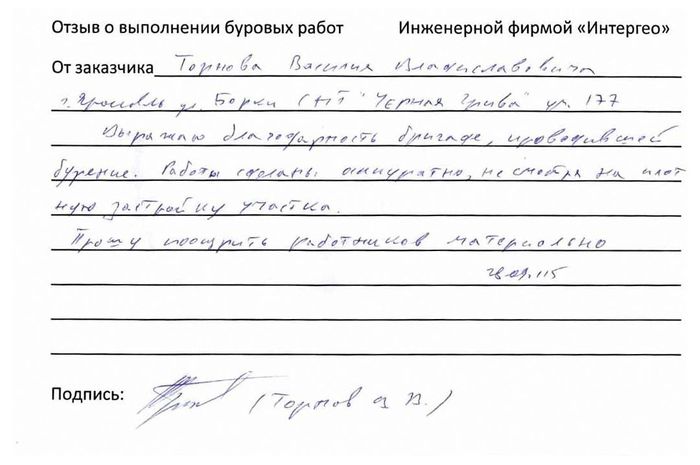 Отзыв о выполнении буровых работ Инженерной фирмой «Интергео»
От заказчика Торнова Василия Владиславовича
ул. Борки СНТ "Черная Грива" уч. 177
Выражаю благодарность бригаде, проводившей
бурение. Работы сделаны аккуратно, не смотря на плот
ную застройку участка.
Прошу поощрить работников материально
Подпись: (Торнов В.)